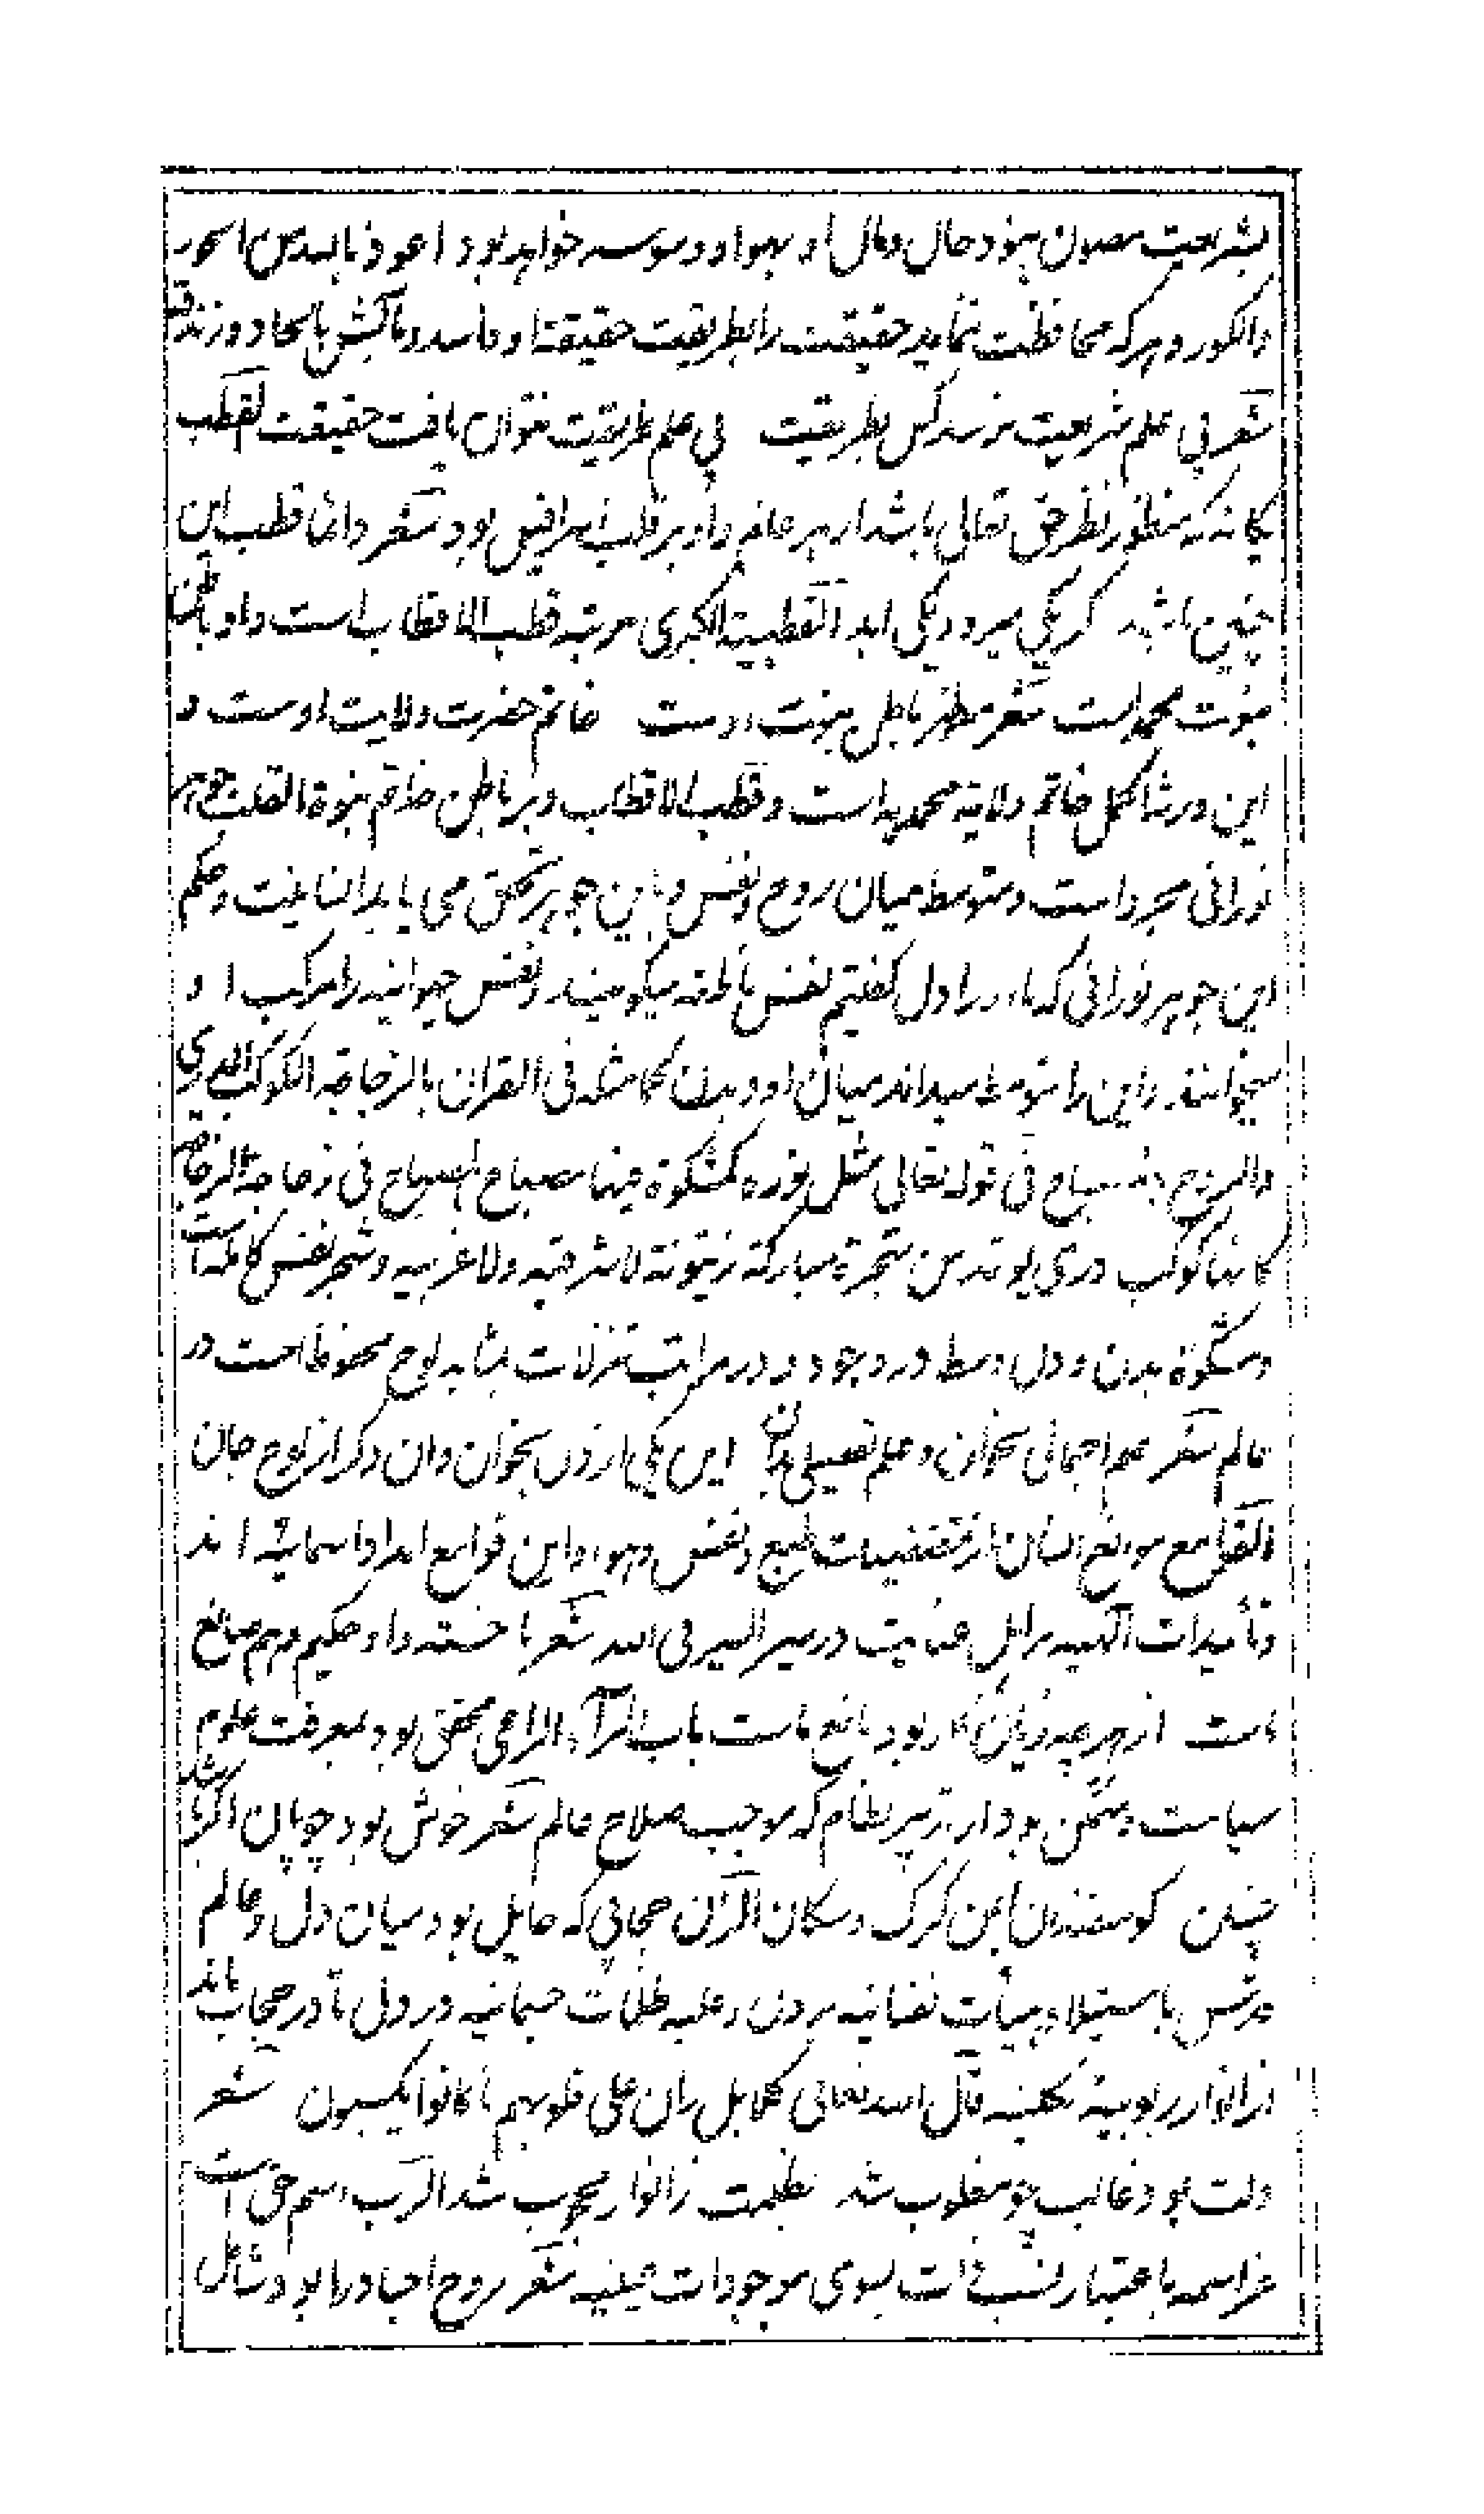 بشریعت مصون نبود حال ومآل او بهوا و وسوسه خواهد بود اعوذ بالله من الحور
والکور و هر که محافظت ننماید حقیقت را بطریقت حقیقة او فاسد و مآلش بالحاد و زندقه
شعر بی علم شریعت نرسد کس بطریقت بی علم طریقت نتوان یافت حقیقت القطب
یکانه که منظور نظر حق تعالی باشد از هر عالم و او بر قلب اسرافیل بود شعر دائما قطب این
چنین باشد کر یکی میرود یکی اید القطبیة الکبری مرتبه قطب الاقطاب است و او باطن
نبوت محمد است شعر مظهر باطن نبوت اوست خاتم حضرت ولایت اوست و
این ورثه اکمل خاتم ولایة محمدیه است و قطب الاقطاب و بر باطن خاتم نبوة القلب جوهر
نورانی مجرد است و متوسط میان روح و نفس و باین جوهر تحقق می یابد انسانیت و حکم
این جوهر نورانی که ما او را دل کفتیم نفس ناطقه میکویند و نفس حیوانیه را مرکب او
میخوانند و این را متوسط میداند میان او و بدن کما مثله فی القرآن بالزجاجة الکوکب الدری
والروح بالمصباح فی قوله تعالی مثل نوره کمشکوة فیها مصباح المصباح فی زجاجة الزجاجة
کانها کوکب دری یوقد من شجرة مبارکة زیتونة لا شرقیه ولا غربیه و شجر نفس کامله است
و مشکوة بدن و دل وسط در وجود و در مراتب تنزلات بمثابه لوح محفوظ است در
عالم شعر علم اجمالی بخوان و علم تفصیلی بدان این یکی از دل بخوان وان دکر از لوح جان
القوامع موانع انسان از مقتضیات طبع و نفس و هوا و این قوامع امداد اسمائیه اند
و تأییدات الهیه بر اهل عنایت در سیر السیر فی الله شعر ما خسته و او حکیم و هم صانع
ماست از هر چه زیان کار بود مانع ماست باب الرآء الراعی محقق بود بمعرفت علوم
سیاست و متمکن بود از تدبیر نظام که موجب صلاح عالم شعر خوش بود چوپان اکر باشد
چنین کوسفندان ایمن کرک و سکان الران حجابی که حایل بود میان دل و عالم
قدس باستیلاء هیأت نفسانیه بر دل و غلبه ظلمات جسمانیه در دل تا در حجاب ماند
از انوار ربوبیة بکلیه قال الله تعالی کلا بل ران علی قلوبهم ما کانوا یکسبون شعر
دلت بود غالب چو مغلوب شد بظلمت ز انوار محجوب شد الرب اسم حق است
عز اسمه باعتبار نسب ذات بسوی موجودات عینیه شعر روح اجساد را بود شامل